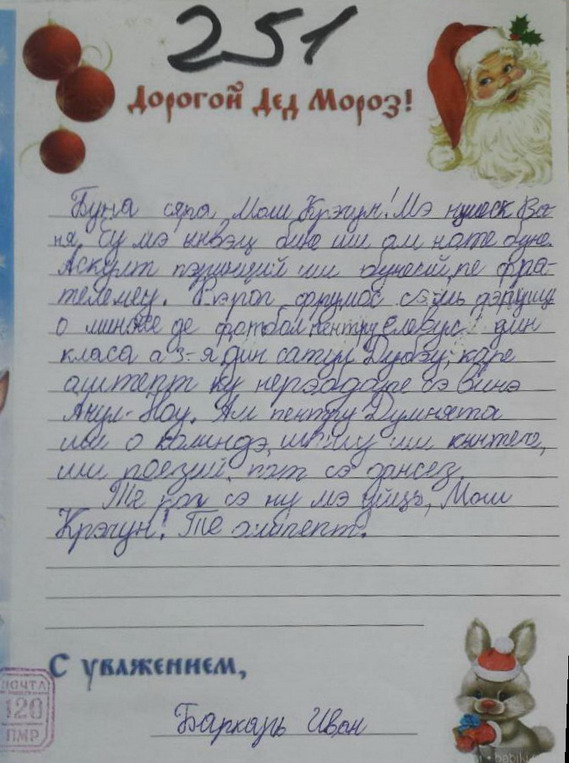 251
Дорогой Дед Мороз!
Буна сяра Мош Крэчун! Мэ нумеск Ва-
ня. Еу мэ ынвэц бине ши ам ноте буне.
Аскулт пэринций ши бунеий, пе фра-
телемеу. Те рог фрумос сэ-мь дэруешь
о минӂе де фотбал пентру елевул дин
класа а 3-я дин сатул Дубэу, каре
аштепт ку нерэбдаре сэ винэ
Анул-Ноу. Ам пентру Думнята
ши о колиндэ, ши ши кынтече,
ши поезий, пот сэ дансез.
Те рог сэ ну мэ уйць, Мош
Крэчун! Те аштепт.
С уважением,
Баркарь Иван
ПОЧТА
120
ПМР